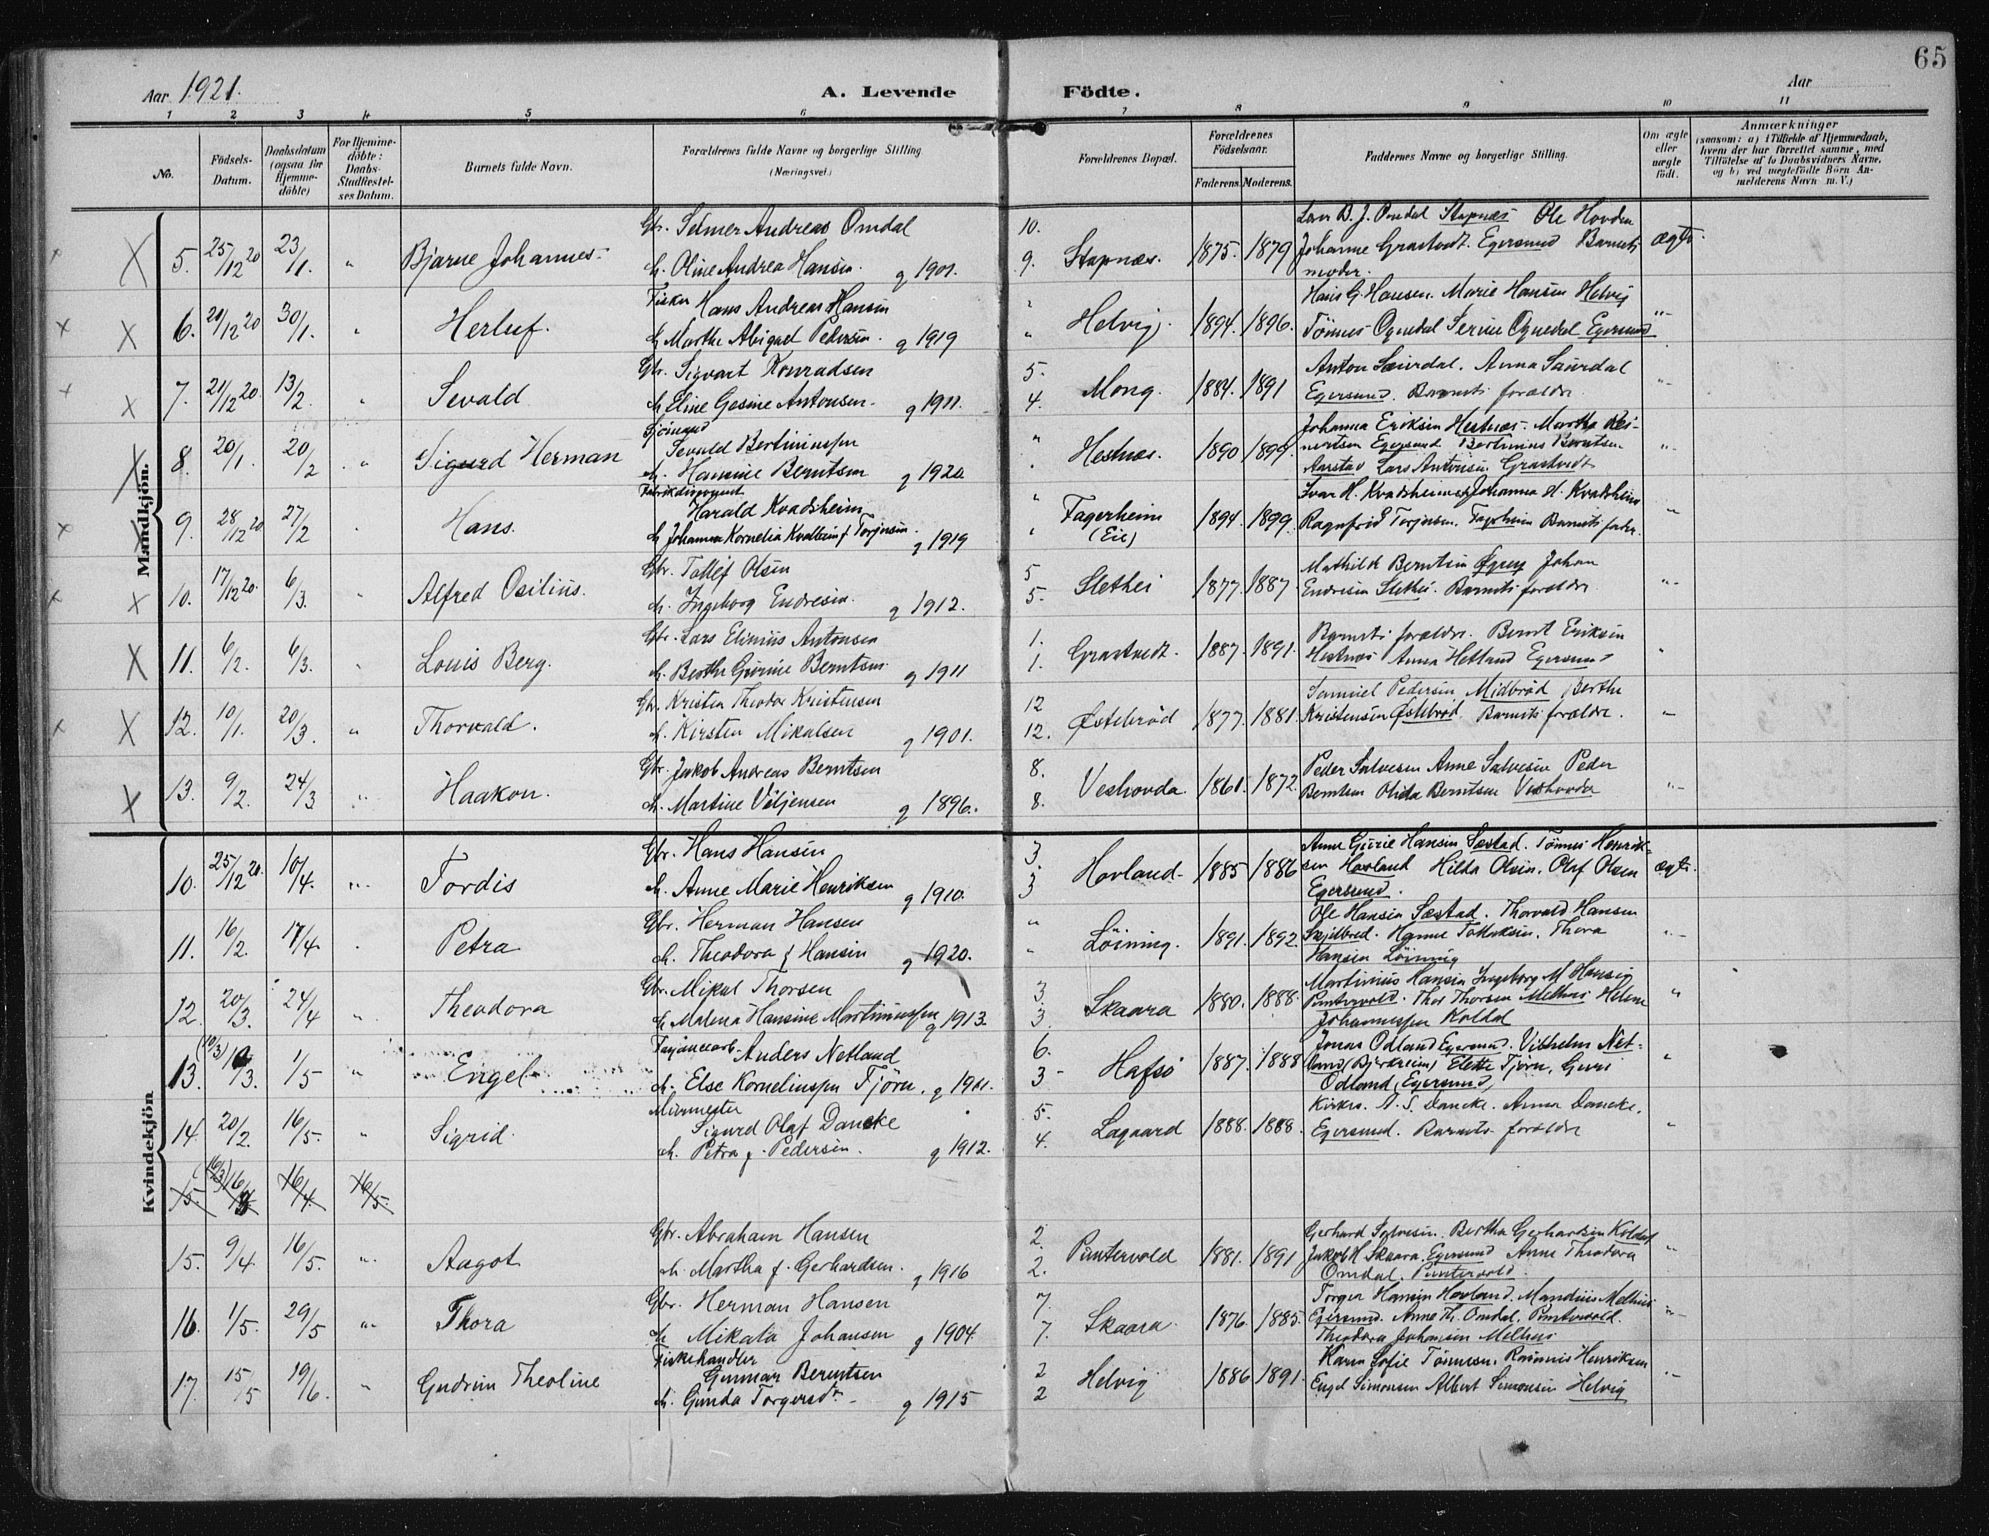 65
Aar 1921.
A. Levende Födte.
Aar
1 2 3 4 5 6 7 8 9 10 11
No.
Födsels-Datum.
Daabsdatum (ogsaa for Hjemme-döbte)
For Hjemme-döbte: Daabs-Stadfestel-ses Datum.
Barnets fulde Navn.
Forældrenes fulde Navne og borgerlige Stilling (Næringsvei.)
Forældrenes Bopæl.
Forældrenes Födselsaar.
Faderens. Moderens.
Faddernes Navne og borgerlige Stilling.
Om ægte eller uægte födt.
Anmærkninger
(saasom: a) i Tilfælde af Hjemmedaab, hvem der har forrettet samme, med Tilföielse af to Daabsvidners Navne, og b) ved uægtefödte Börn An-melderens Navn m. V.)
Mandkjön.
5. 25/12 20 23/1. " Bjarne Johannes. Gbr. Selmer Andreas Omdal
h. Oline Andrea Hansen. g 1901. 10. 9. Stapnæs. 1875. 1879 B. J. Omdal Stapnæs Ole Hovden
Johanne Grastvedt Egersund Barnets ægte.
moder.
6. 20/12 20 30/1. " Herluf. Fisker Hans Andreas Hansen
h. Marthe Abigael Pedersen. g 1919 Helvig. 1894. 1896. Hans G. Hansen. Marie Hansen Helvig
Tönnes Ognedal Serine Ognedal Egersund
7. 21/12 20. 13/2. " Sevald Gbr. Sigvart Konradsen
h. Eline Gesine Antonsen. g 1911. 5. 4. Mong. 1884. 1891 Anton Saurdal. Anna Saurdal
Egersund. Barnets forældre.
8. 20/1. 20/2 " Sigurd Herman Sjömand Sevald Bertiniussen
h. Hansine Berntsen g 1920. Hestnæs. 1890 1899. Johanna Eriksen Hestnæs. Martha Rei-
nertsen Egersund Bertinius Berntsen
Aarstad Lars Antonsen Grastvedt
9. 28/12 20 27/2 Hans. Harald Kvadsheim
h. Johanna Kornelia Kvalbein f Torjusen. g 1919 Fagerheim (Eie) 1894. 1899. Ivar H. Kvadsheim Johanna H. Kvadsheim
Ragnfrid Torjusen. Fagerheim Barnets fader.
10. 17/12 20. 6/3. " Alfred Osilius. Gbr. Tollef Olsen
h. Ingeborg Endresen. g 1912. 5 5. Slethei 1877. 1887 Mathilde Berntsen Øgrey Johan
Endresen Slethei. Barnets forældre
11. 6/2. 6/3. " Louis Berg. Gbr. Lars Elinius Antonsen
h. Berthe Gurine Berntsen g 1911 1. 1. Grastvedt. 1887. 1891. Barnets forældre. Bernt Eriksen
Hestnæs Anna Hetland Egersund
12. 10/1. 20/3. " Thorvald. Gbr. Kristen Theodor Kristensen
h. Kirsten Mikalsen g 1901. 12 12. Østebröd 1877. 1881. Samuel Pedersen Midbröd Berthe
Kristensen Østebröd. Barnets forældre.
13. 9/2. 24/3 " Haakon. Gbr. Jakob Andreas Berntsen
h. Martine Viljensen g 1896. 8. 8. Veshovda. 1861. 1872. Peder Salvesen Anne Salvesen Peder
Berntsen Olida Berntsen Veshovda
Kvindekjön
10. 25/12 20. 10/4. " Tordis Gbr. Hans Hansen
h. Anne Marie Henriksen g 1910. 3. 3 Hovland. 1885 1886 Anne Gurie Hansen Sæstad. Tönnes Henrik-
sen Hovland Hilda Olsen. Olaf Olsen ægte.
Egersund.
11. 16/2. 17/4. Petra Gbr. Herman Hansen
h. Theodora f Hansen g 1920. Löining. 1891. 1892. Ole Hansen Sæstad. Thorvald Hansen
Skjelbred. Hanne Tolleksen. Thora
Hansen Löining
12. 20/3. 24/4 " Theodora Gbr. Mikal Thorsen
h. Malena Hansine Martiniussen g 1913. 3. 3. Skaara 1880. 1888. Martinius Hansen Ingeborg M Hansen
Puntervold. Thor Thorsen Melhus Helene
Johannessen Koldal
13. (10/3) /3. 1/5 " Engel Anders Netland
h. Else Korneliussen Tjörn. g 1901. 6. 3 Hafsö 1887. 1888 Jonas Odland Egersund. Vilhelm Net-
land (Bjerkreim) Elette Tjörn. Guri
Odland, Egersund,
14. 20/2. 16/5. " Sigrid. Murmester Sigurd Olaf Dancke
h. Petra f. Pedersen. g 1912. 5. 4. Lagaard 1888. 1888. Kirkes. A. S. Dancke. Anna Dancke.
Egersund. Barnets forældre
15. 16/4. 16/5.
15. 9/4 16/5. " Aagot Gbr. Abraham Hansen
h. Martha f. Gerhardsen. g 1916 2. 2. Puntervold 1881. 1891 Gerhard Sylvesen. Bertha Gerhardsen Koldal
Jakob H Skaara Egersund Anne Theodora
Omdal. Puntervold.
16. 1/5. 29/5 " Thora Gbr. Herman Hansen
h. Mikala Johansen g 1904 7. 7. Skaara. 1876. 1885. Torger Hansen Hovland. Mandius Melhus
Egersund. Anne Th. Omdal. Puntervold.
Theodora Johansen Melhus
17. 15/5 19/6. " Gudrun Theoline Fiskehandler Gunnar Berntsen
h. Gunda Torgersdr. g 1915 2 2 Helvig 1886 1891. Karen Sofie Tönnesen. Rasmus Henriksen
Engel Simonsen Albert Simonsen Helvig